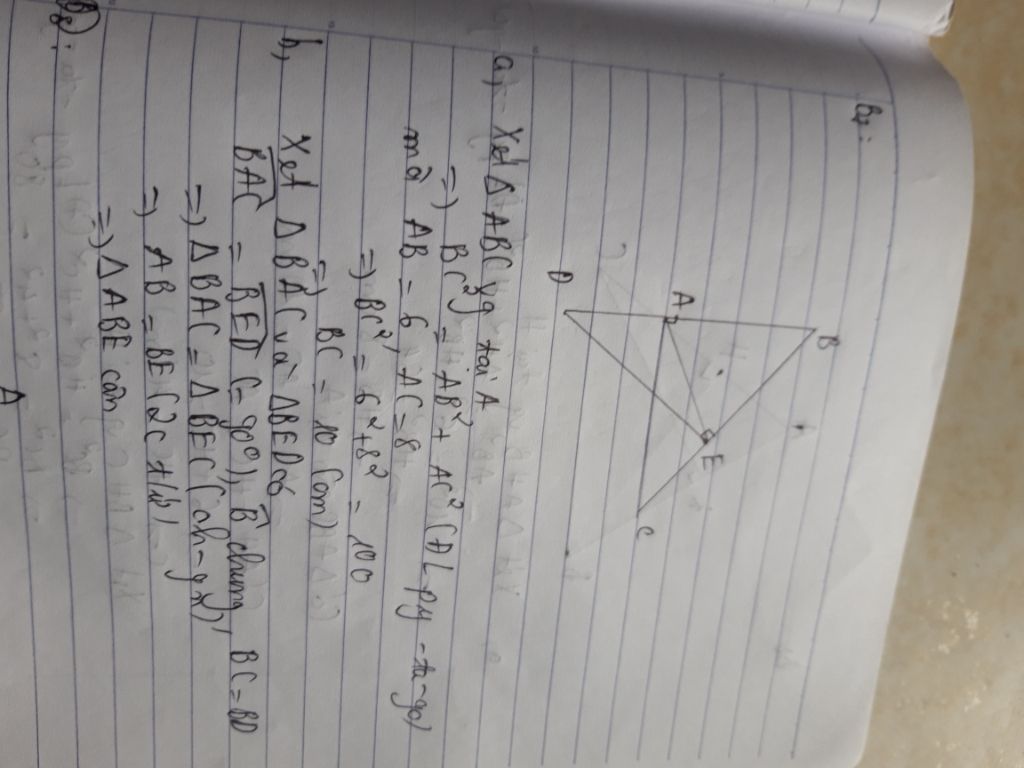 B2:
B
A
E
C
D
a) - Xét Δ ABC vg tại A
=) BC² = AB² + AC² (ĐL py-ta-go)
mà AB = 6, AC = 8
=) BC² = 6² + 8² = 100
=) BC = 10 (cm)
b, Xét Δ BAC và ΔBED có
BAC = BED (= 90°), B chung, BC = BD
=) ΔBAC = ΔBED (ch-gn)
=) AB = BE (2c t/ư)
=) ΔABE cân
A